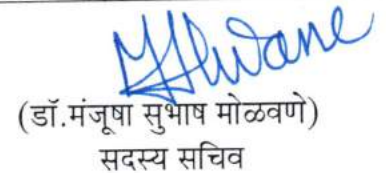 (डॉ.मंजूषा सुभाष मोळवणे)
सदस्य सचिव